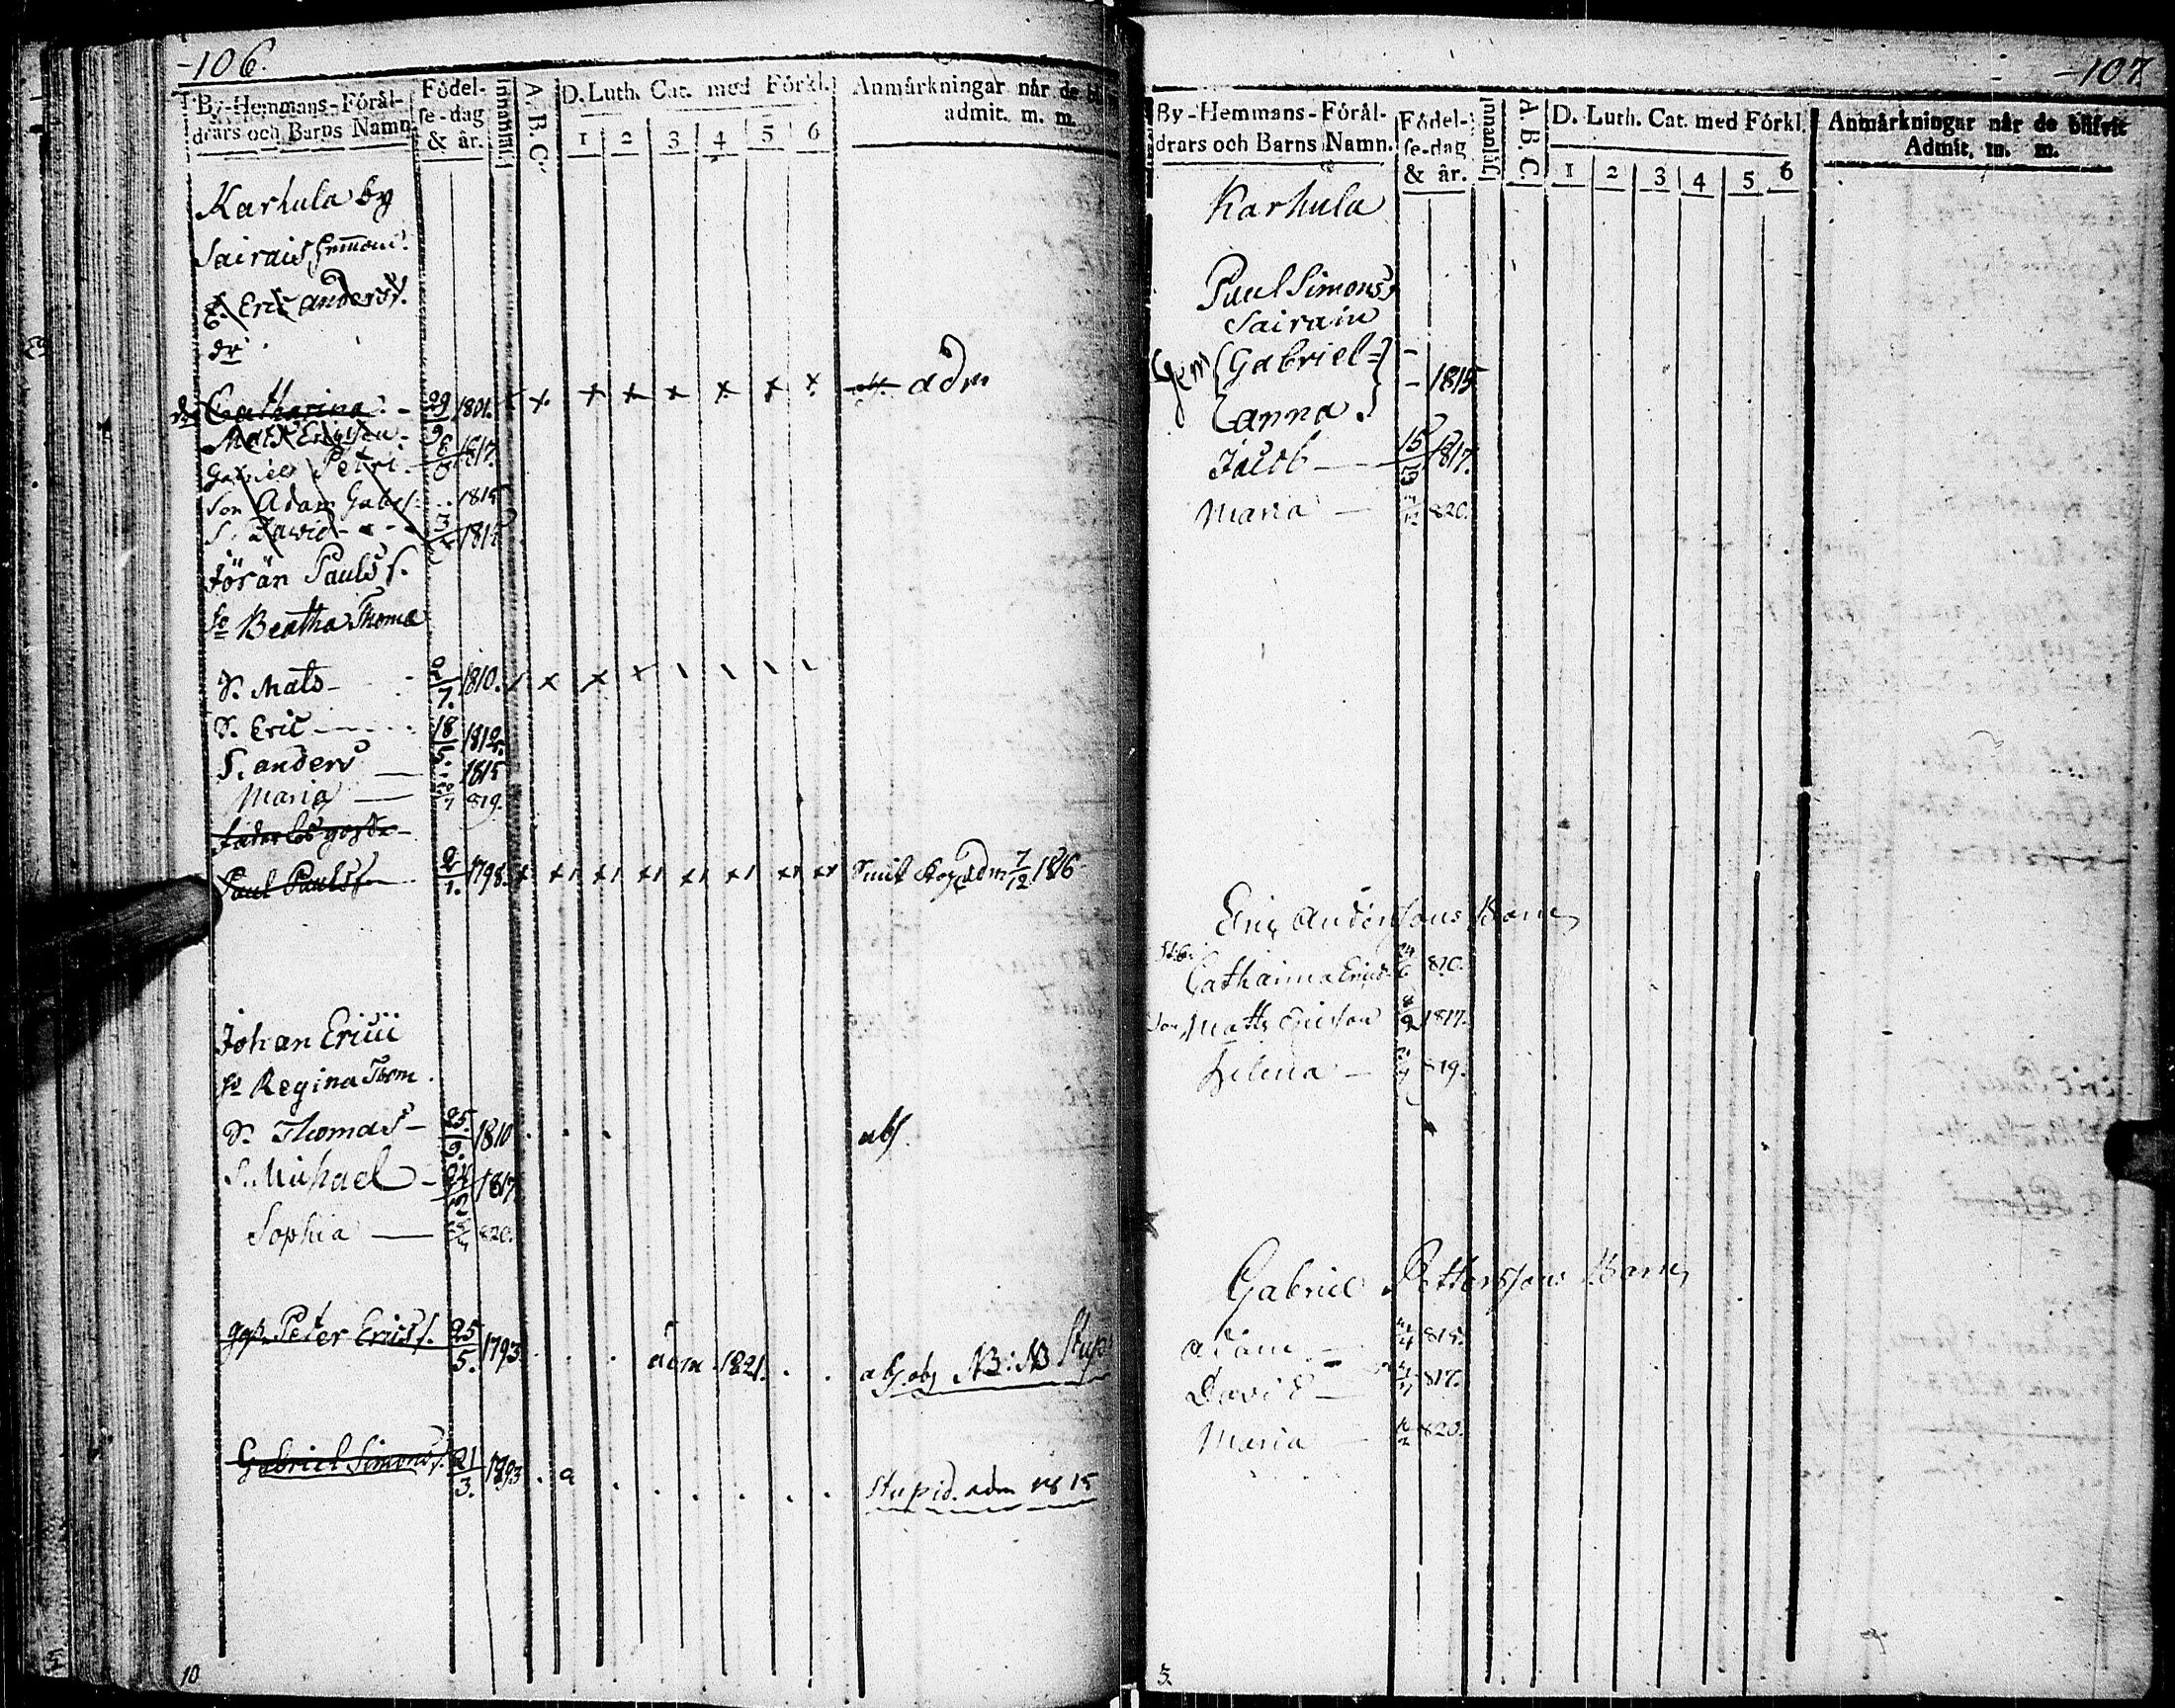 -106.
By-Hemmans-Föräl-
drars och Barns Namn.
Födel-
se-dag
& år.
Innanläs.
A. B. C.
D. Luth. Cat. med Förkl.
1 2 3 4 5 6
Anmärkningar når de
admit. m. m.
Karhula by
Sairais
Eric anderss.
dr
Catharina - 29/9 1801. x x x x x x x adm
Mats Ericson 8/9 1817.
Gabriel Petri
Son Adam Gabr. 1815
S. David - - - 1817
Jörän Paulss.
h. Beatha Thomæ
S. Mats - 2/7. 1810. x x x
S. Eric - 18/5. 1812.
S. anders 1815
Maria 819.
Paul Paulss. 2/1. 1798. adm 7/12 1816
Johan Erici
h. Regina Thom.
S. Thomas - 25./9. 1810 abs.
S. Michael - 1817
Sophia 820.
Peter Ericss. 25/5. 1793. adm 1821. abs. abs NB: NB Stup
Gabriel Simonss. 21/3. 1793 . a . . . . . . Stupid. adm 1815
10
-107.
By-Hemmans-Föräl-
drars och Barns Namn.
Födel-
se-dag
& år.
Innanläs.
A. B. C.
D. Luth. Cat. med Förkl.
1 2 3 4 5 6
Anmärkningar når de blifvit
Admit, m. m.
Karhula
Paul Simonss
Sairain
Gem {Gabriel =} - 1815
{anna.} -
Jacob 15/5 1817.
Maria 820.
Eric Anderssons Barn
Catharina Ericsd. 810.
Son Matts Ericsson 8/9 1817.
Helena - 819.
Gabriel Petterssons Barn
Adam - 815.
David - 817.
Maria 820.
5.